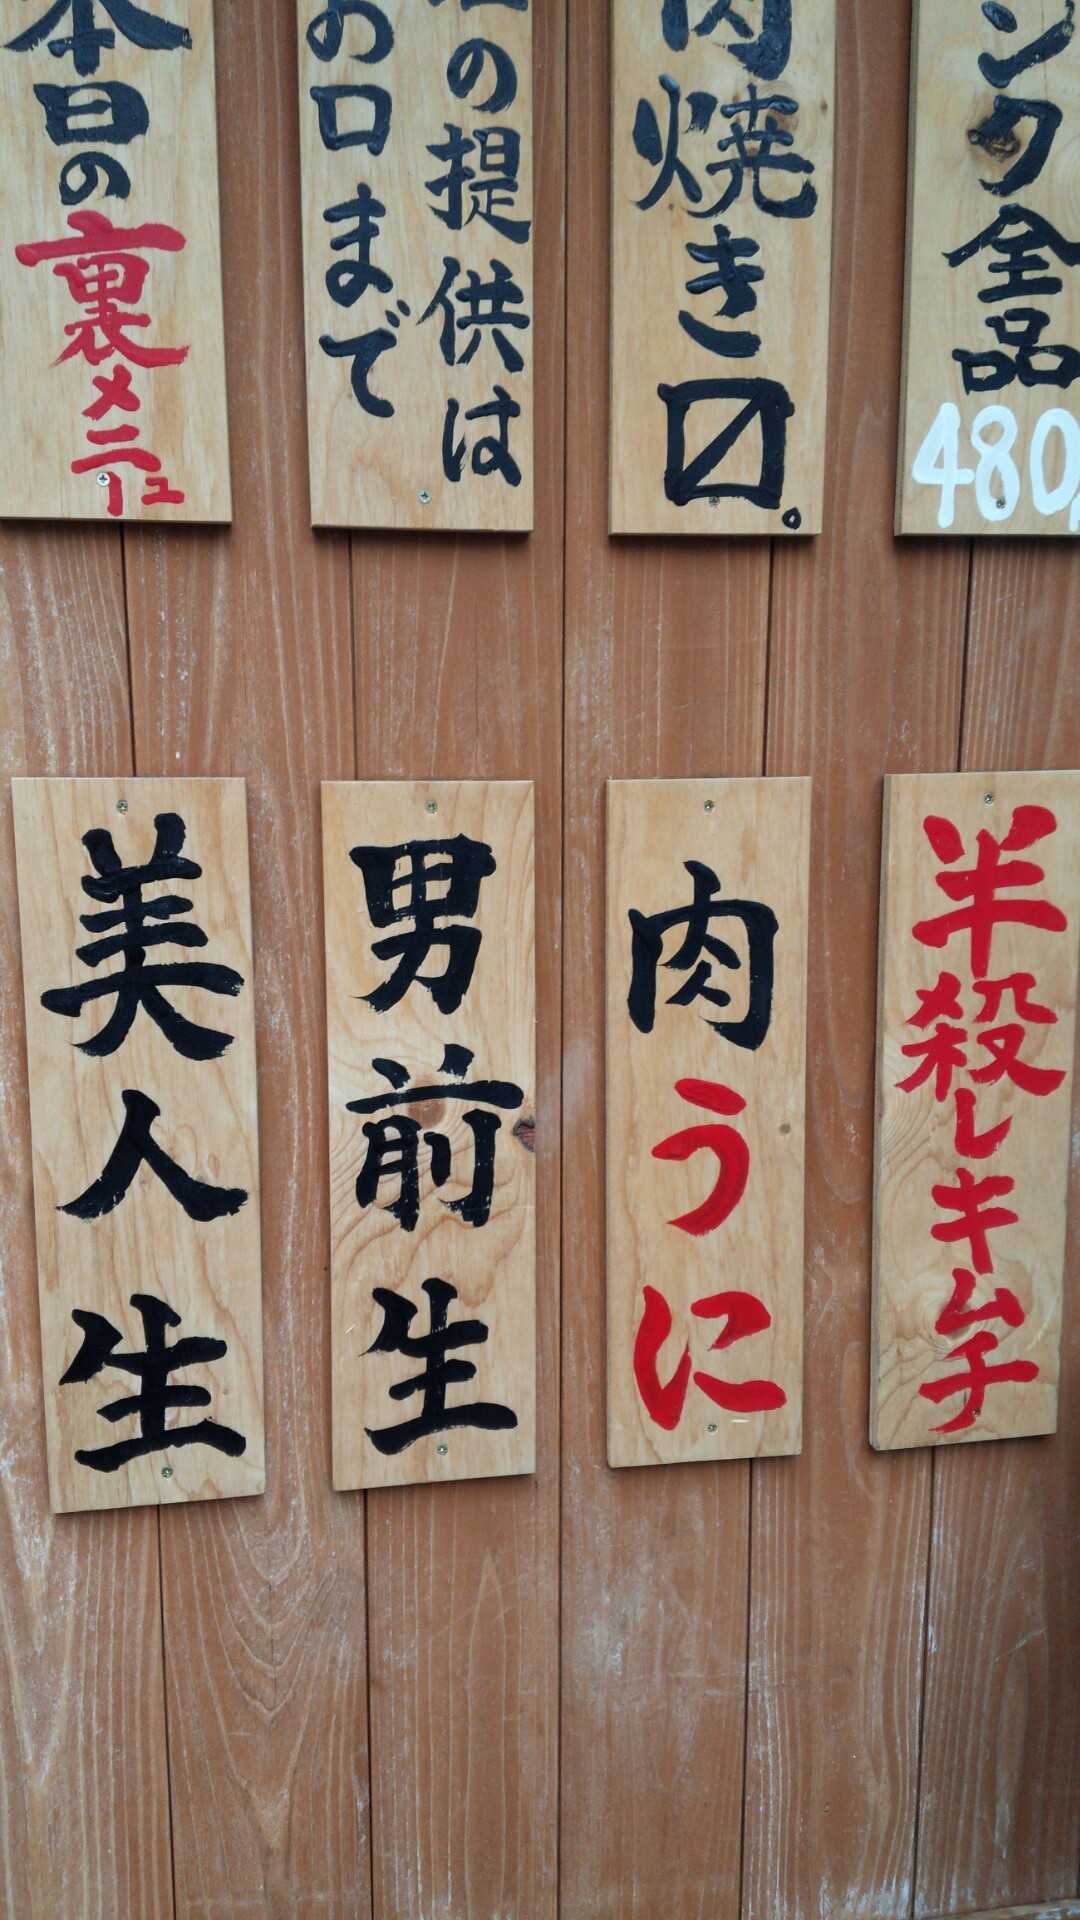 ンク全品
480
肉焼き〼。
の提供は
お口まで
本日の
裏メニュー
半殺しキムチ
肉うに
男前生
美人生